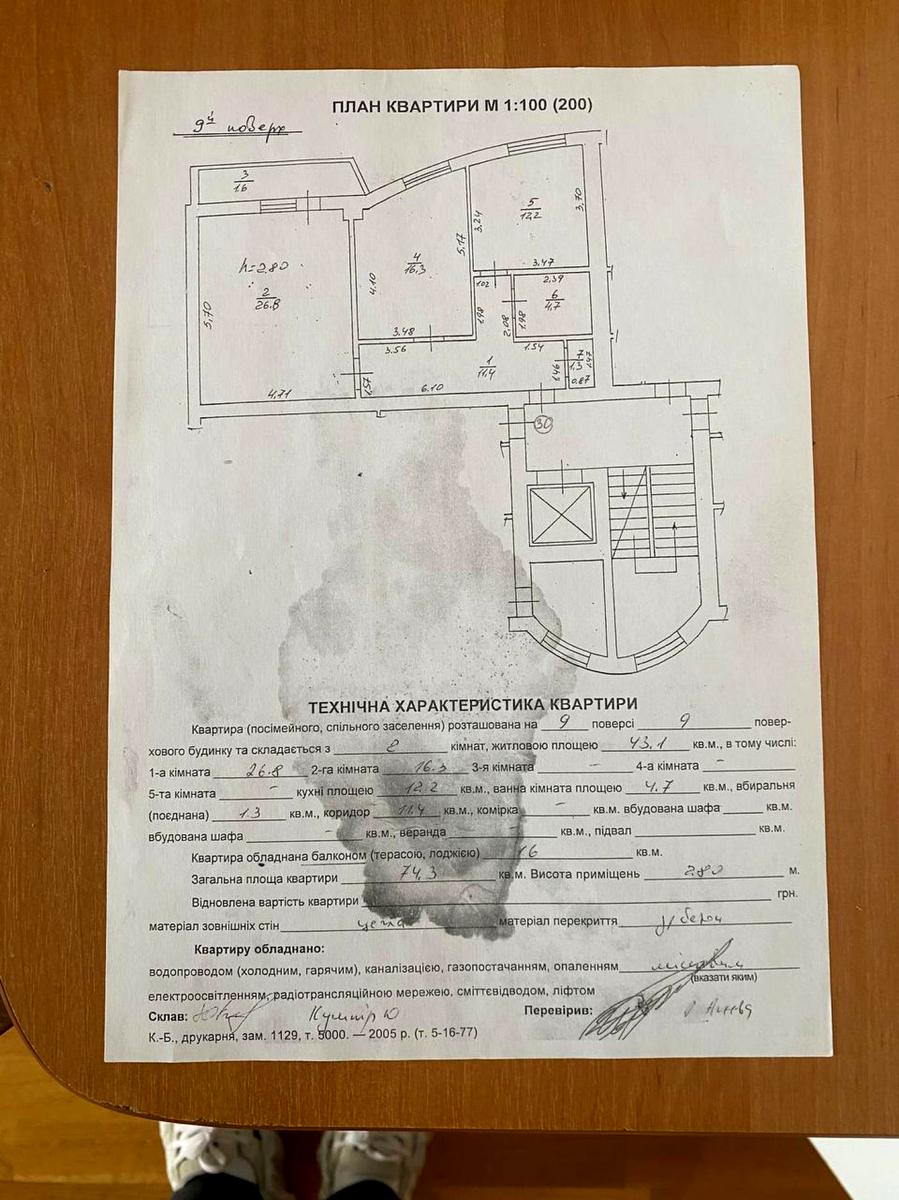 ПЛАН КВАРТИРИ М 1:100 (200)
9й поверх
3
1.6
5
12.2
3.70
3.24
5.17
4
16.3
4.10
h=2.80
2
26.8
5.70
3.47
1.02
2.39
6
4.7
1.98
2.08
1.98
3.48
3.56
1.54
7
1.3
1.47
1
11.4
1.46
0.87
1.57
6.10
4.71
30
ТЕХНІЧНА ХАРАКТЕРИСТИКА КВАРТИРИ
Квартира (посімейного, спільного заселення) розташована на 9 поверсі 9 повер-
хового будинку та складається з 2 кімнат, житловою площею 43.1 кв.м., в тому числі:
1-а кімната 26.8 2-га кімната 16.3 3-я кімната – 4-а кімната –
5-та кімната – кухні площею 12.2 кв.м., ванна кімната площею 4.7 кв.м., вбиральня
(поєднана) 1.3 кв.м., коридор 11.4 кв.м., комірка – кв.м. вбудована шафа кв.м.
вбудована шафа – кв.м., веранда – кв.м., підвал кв.м.
Квартира обладнана балконом (терасою, лоджією) 1.6 кв.м.
Загальна площа квартири 74,3 кв.м. Висота приміщень 2.80 м.
Відновлена вартість квартири грн.
матеріал зовнішніх стін цегла матеріал перекриття з/бетон
Квартиру обладнано:
водопроводом (холодним, гарячим), каналізацією, газопостачанням, опаленням місцевим
(вказати яким)
електроосвітленням, радіотрансляційною мережею, сміттєвідводом, ліфтом
Склав: Кушнір Ю Перевірив:
К.-Б., друкарня, зам. 1129, т. 5000. — 2005 р. (т. 5-16-77)